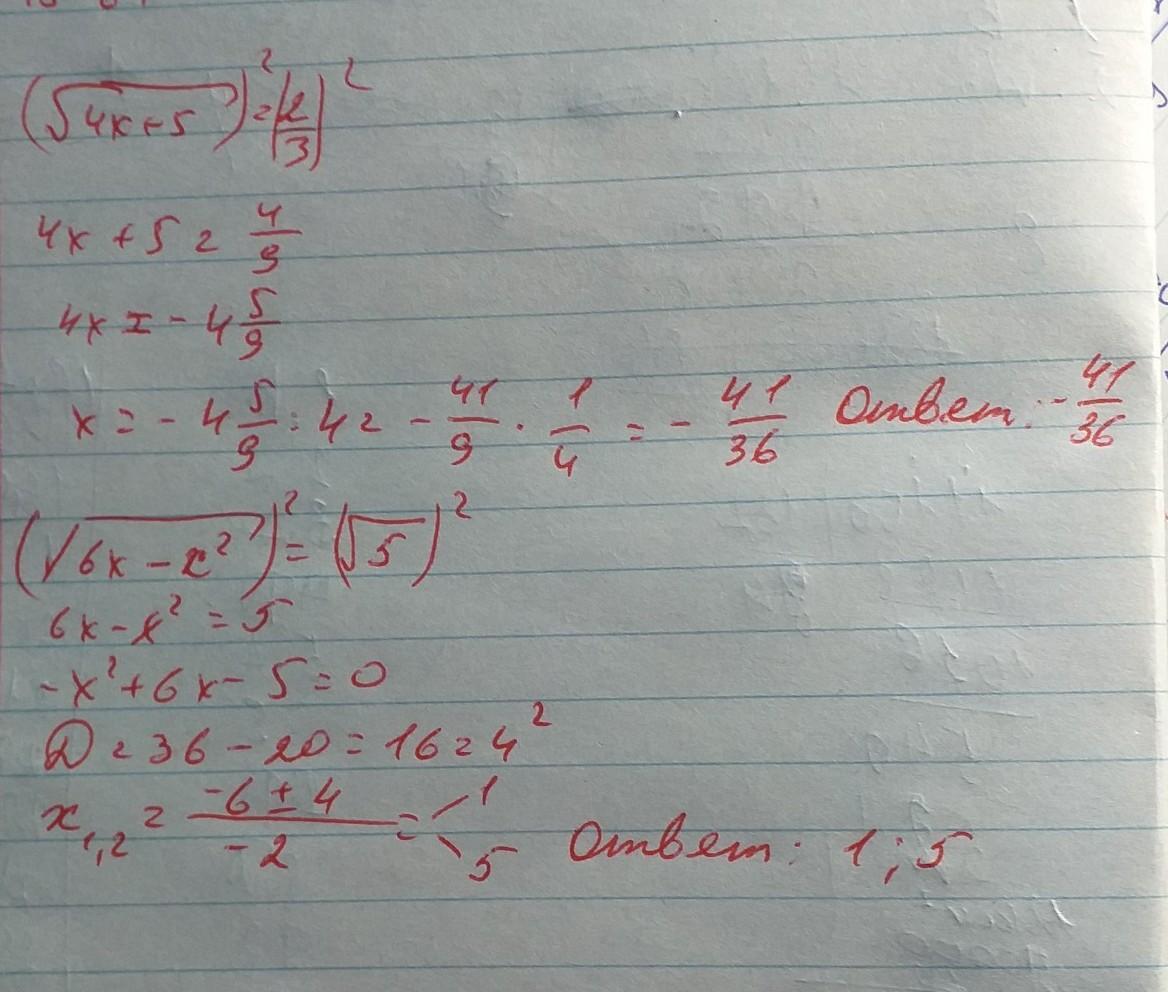 (√4x+5)² = (2/3)²
4x + 5 = 4/9
4x = - 4 5/9
x = - 4 5/9 : 4 = - 41/9 · 1/4 = - 41/36 Ответ: - 41/36
(√6x - x²)² = (√5)²
6x - x² = 5
-x² + 6x - 5 = 0
D = 36 - 20 = 16 = 4²
x₁,₂ = -6 ± 4 / -2 = 1
5 Ответ: 1; 5